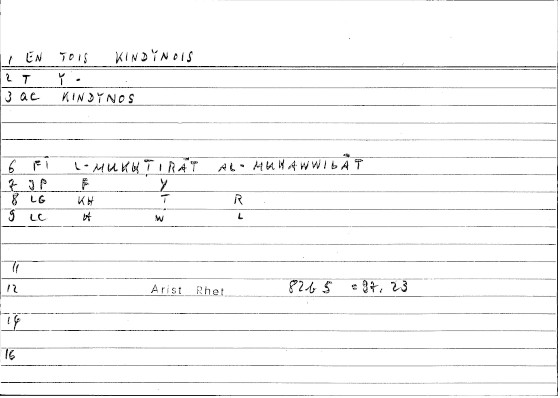 1 EN TOIS KINDYNOIS
2 T Y -
3 QC KINDYNOS
6 FĪ L-MUKHṬIRĀT AL-MUHAWWILĀT
7 JP F Y
8 LG KH Ṭ R
9 LC H W L
11
12 Arist Rhet 82b5 = 97,23
14
16